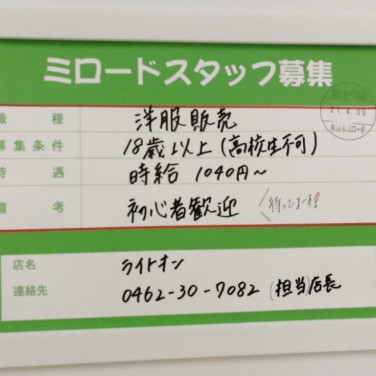 ミロードスタッフ募集
職種 洋服販売
募集条件 18歳以上(高校生不可)
待遇 時給 1040円～
備考 初心者歓迎 待ってまーす!!
店名 ライトオン
連絡先 0462-30-7082 (担当)店長